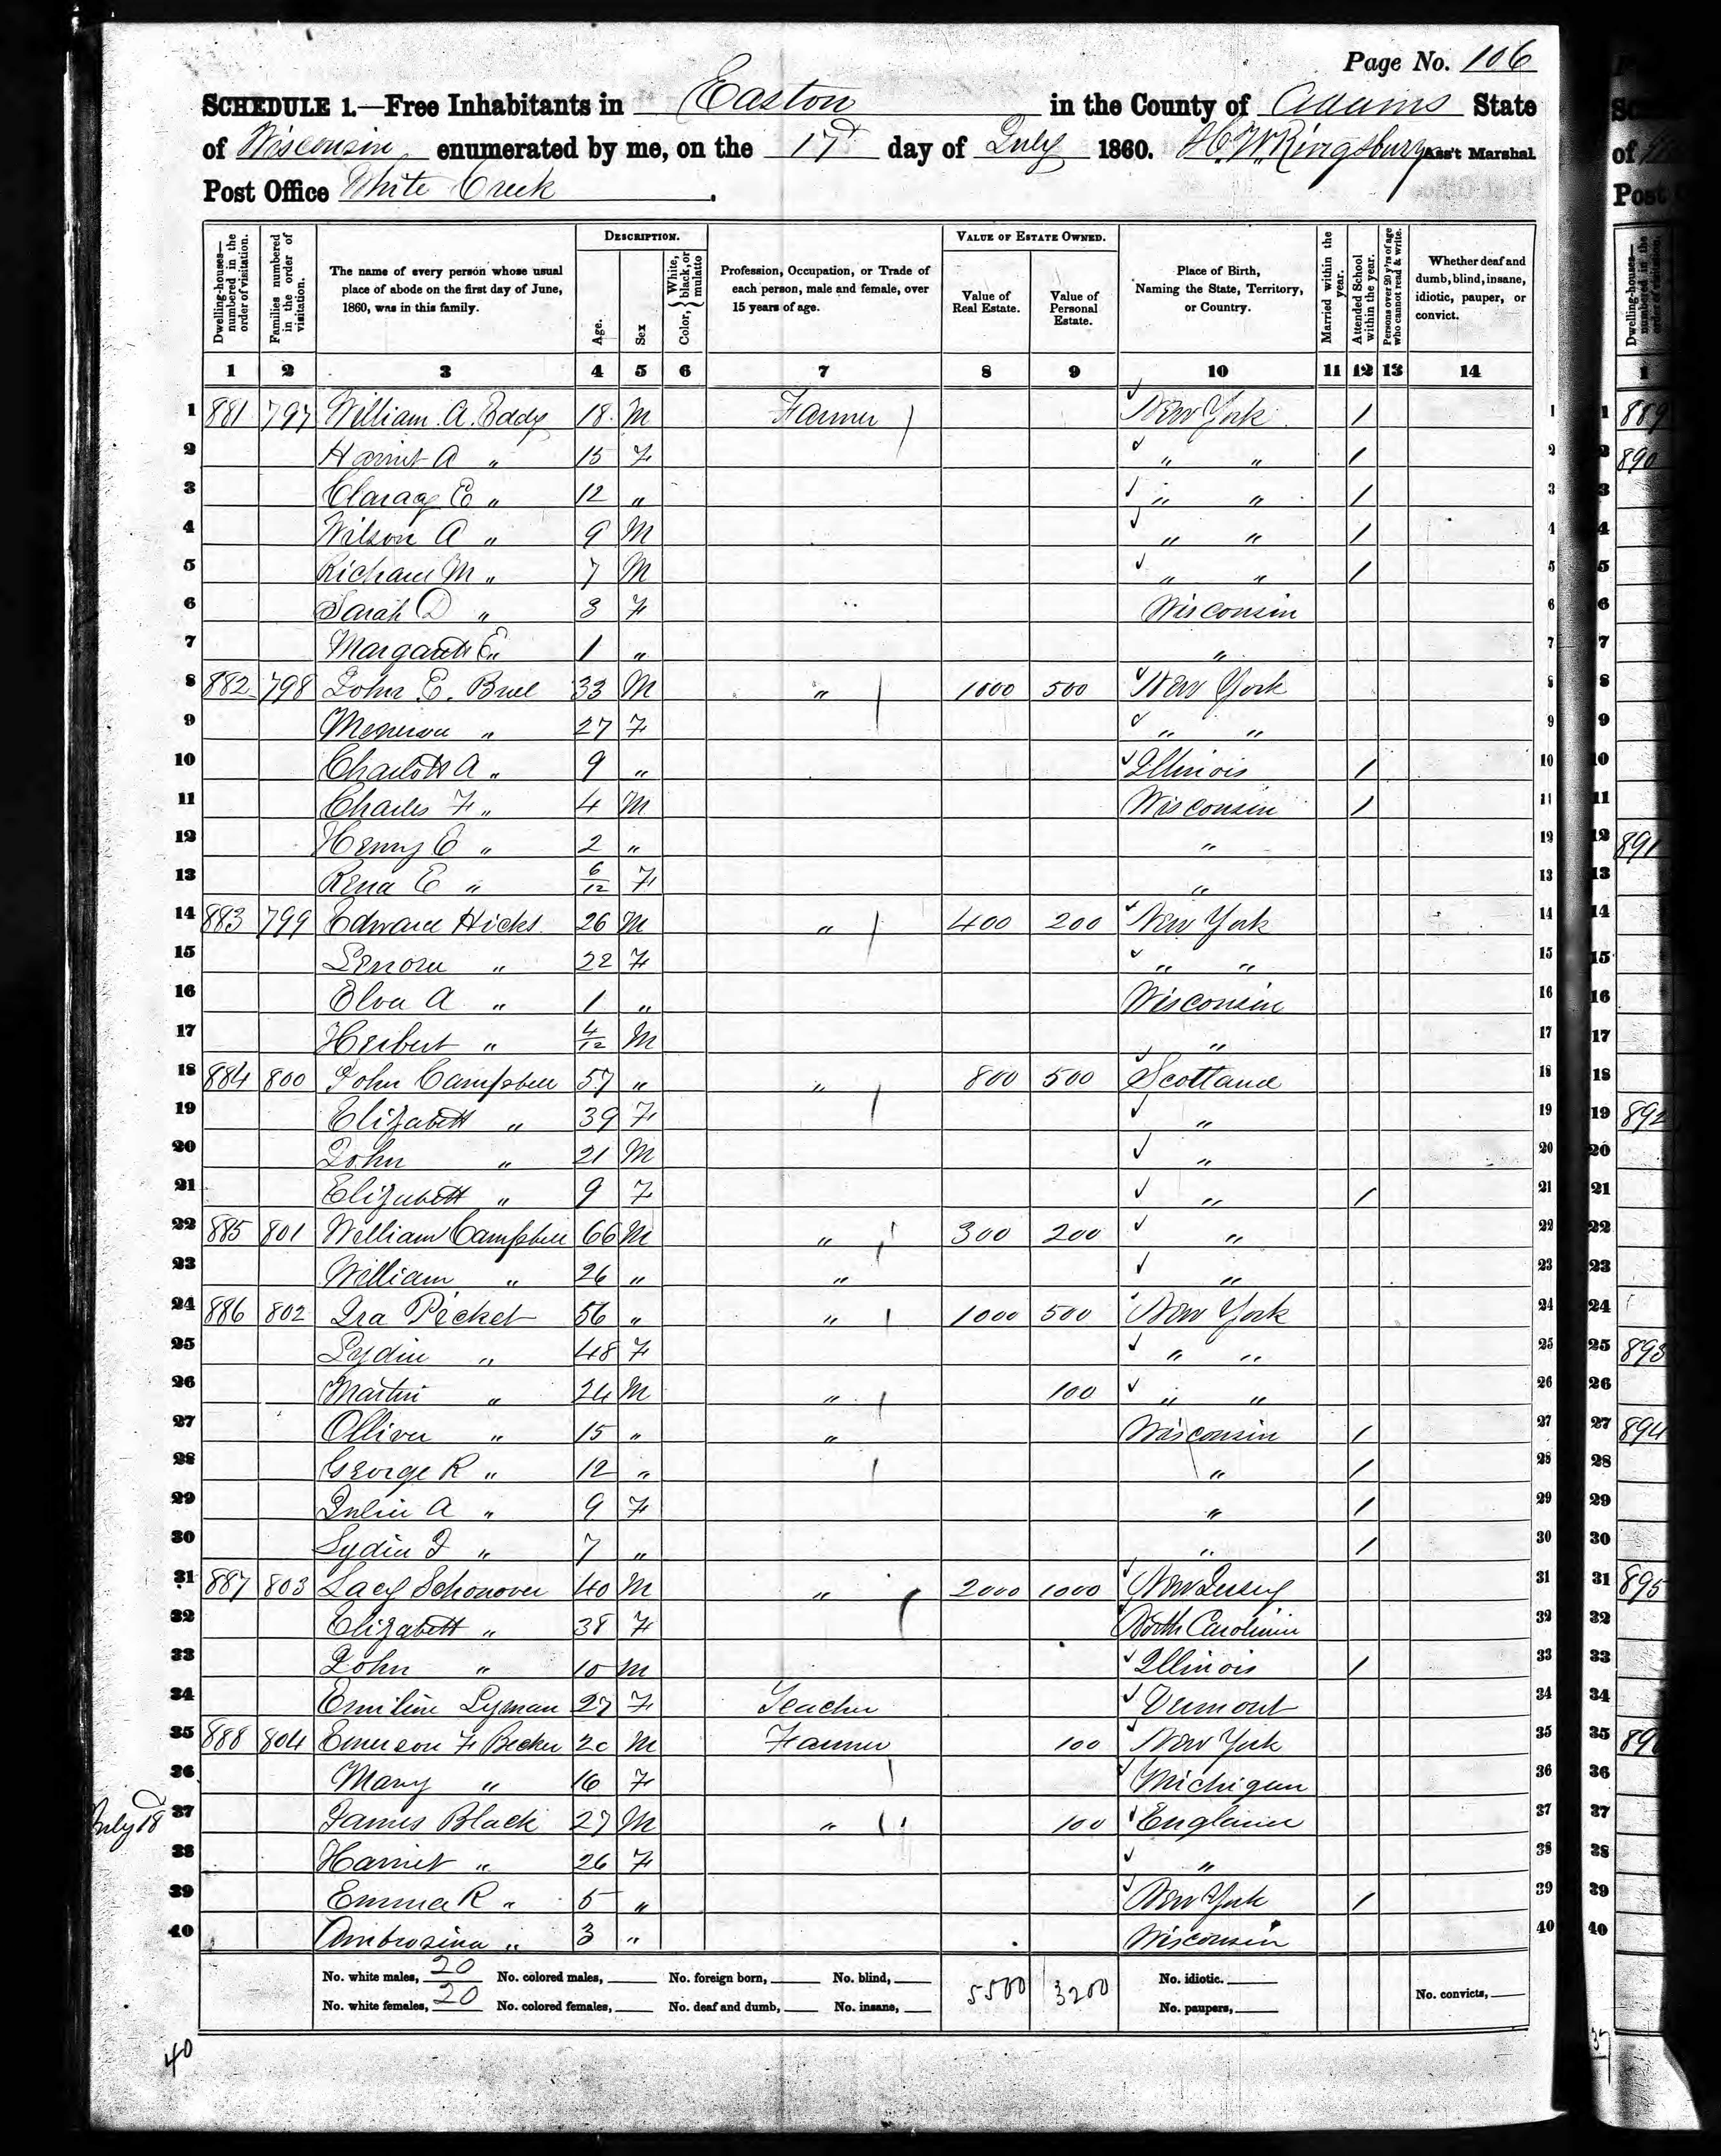 Page No. 106
SCHEDULE 1.—Free Inhabitants in Easton in the County of Adams State
of Wisconsin enumerated by me, on the 17th day of July 1860. H. W. Kingsbury Ass't Marshal
Post Office White Creek.
Dwelling-houses—numbered in the order of visitation. Families numbered in the order of visitation. The name of every person whose usual place of abode on the first day of June, 1860, was in this family. DESCRIPTION. Age. Sex Color, White, black, or mulatto Profession, Occupation, or Trade of each person, male and female, over 15 years of age. VALUE OF ESTATE OWNED. Value of Real Estate. Value of Personal Estate. Place of Birth, Naming the State, Territory, or Country. Married within the year. Attended School within the year. Persons over 20 y'rs of age who cannot read & write. Whether deaf and dumb, blind, insane, idiotic, pauper, or convict.
1 2 3 4 5 6 7 8 9 10 11 12 13 14
1 881 797 William A. Eddy 18 M Farmer New York / 1
2 Harriet A " 15 F " " / 2
3 E " 12 " " " / 3
4 Wilson A " 9 M " " / 4
5 Richard M " 7 M " " / 5
6 Sarah D " 3 F Wisconsin 6
7 Margarett E " 1 " " 7
8 882 798 John E. Buel 33 M " 1000 500 New York 8
9 " 27 F " " 9
10 Charlott A " 9 " Illinois / 10
11 Charles F " 4 M Wisconsin / 11
12 Henry E " 2 " " 12
13 Rena E " 6/12 F " 13
14 883 799 Edward Hicks 26 M " 400 200 New York 14
15 Lenora " 22 F " " 15
16 Elva A " 1 " Wisconsin 16
17 Herbert " 4/12 M " 17
18 884 800 John Campbell 57 " " 800 500 Scotland 18
19 Elizabett " 39 F " 19
20 John " 21 M " 20
21 Elizabett " 9 F " / 21
22 885 801 William Campbell 66 M " 300 200 " 22
23 William " 26 " " " 23
24 886 802 Ira Picket 56 " " 1000 500 New York 24
25 Lydia " 48 F " " 25
26 Martin " 24 M " 100 " " 26
27 Olliver " 15 " " Wisconsin / 27
28 George R " 12 " " / 28
29 Julia A " 9 F " / 29
30 Lydia J " 7 " " / 30
31 887 803 Lacy Schonover 40 M " 2000 1000 New Jersey 31
32 Elizabett " 38 F North Carolinia 32
33 John " 10 M Illinois / 33
34 Emiline Lyman 27 F Teacher Vermont 34
35 888 804 Emerson F Becker 20 M Farmer 100 New York 35
36 Mary " 16 F Michigan 36
July 18
37 James Black 27 M " 100 England 37
38 Harriet " 26 F " 38
39 Emma R " 5 " New York / 39
40 Ambrosina " 3 " Wisconsin 40
No. white males, 20 No. colored males, No. foreign born, No. blind, 5500 3200 No. idiotic.
No. white females, 20 No. colored females, No. deaf and dumb, No. insane, No. paupers, No. convicts,
40
889
890
891
892
893
894
895